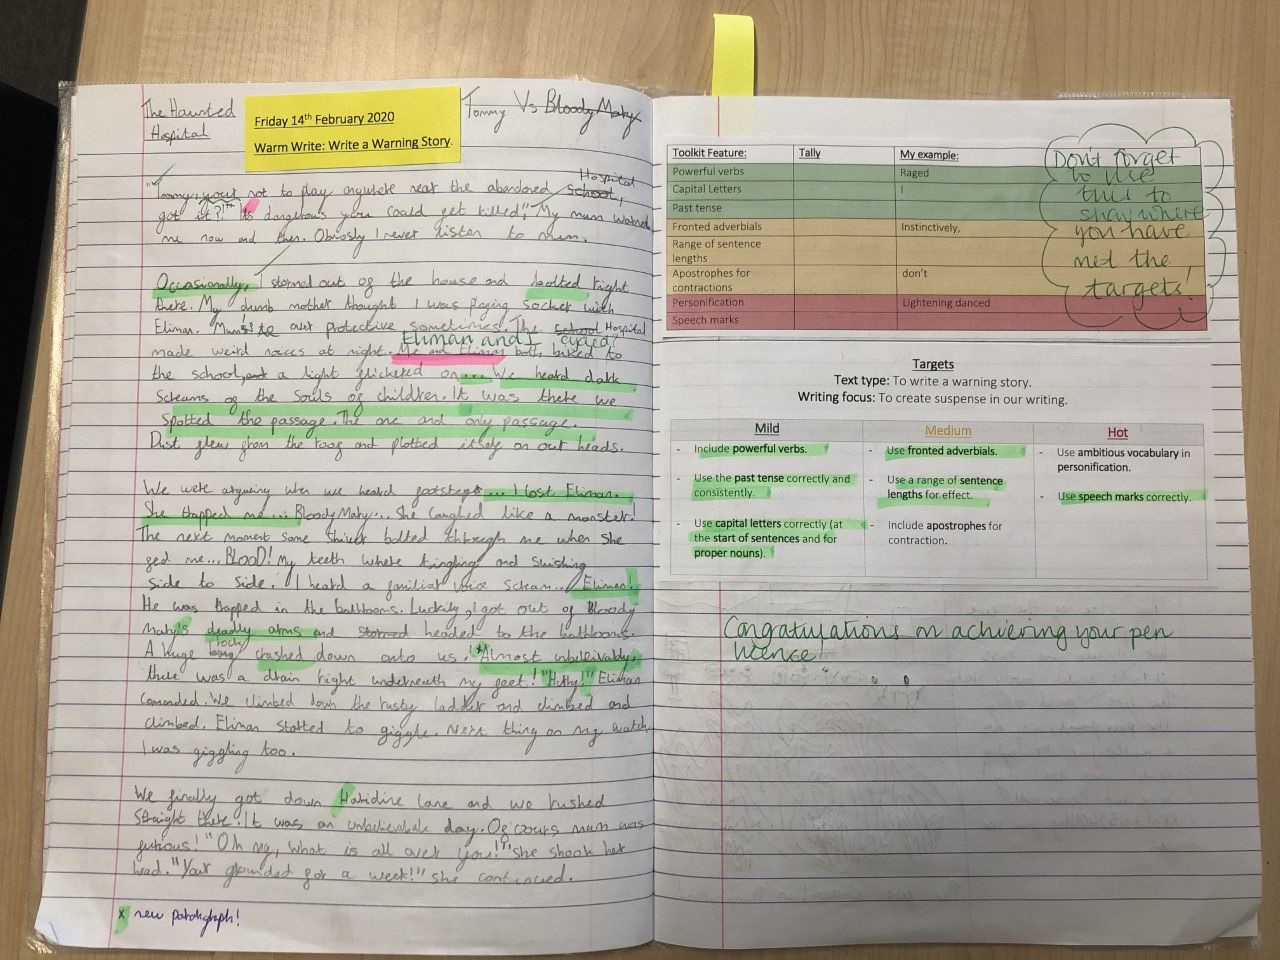 The Haunted
Hospital
Friday 14th February 2020
Warm Write: Write a Warning Story.
Tommy Vs Bloody Mary
"Tommy, your not to play anywhere near the abandoned school, Hospital
got it?!" "Its dangerous you could get killed," My mum warned
me now and then. Obviosly I never listen to mum.
Occasionally, I stormed out of the house and bolted right
there. My dumb mother thought I was playing socker with
Eliman. Mum's to over protective sometimes. The school Hospital
Eliman and I cycled
made weird noices at night. Me and Eliman both biked to
the school, and a light flickered on... We heard dark
Screams of the souls of children. It was there we
Spotted the passage. The one and only passage.
Dust flew from the roof and plotted itself on our heads.
We were arguing when we heard footsteps... I lost Eliman.
She trapped me... Bloody Mary... She laughed like a monster!
The next moment some shiver bolted through me when she
fed me... BLOOD! My teeth where tingling and swishing
side to side. I heard a familiar voice scream... Eliman!
He was trapped in the bathrooms. Luckily, I got out of Bloody
Mary's deadly arms and stormed headed to the bathrooms.
A huge body bang crashed down onto us. x"Almost unbeleivably,
there was a drain right underneath my feet! "Hurry!" Eliman
comanded. We climbed down the rusty ladder and climbed and
climbed. Eliman started to giggle. Next thing on my watch
I was giggling too.
We finally got down Haridine lane and we rushed
Straight there. It was an unbelievable day. Of cours mum was
furious! "Oh my, what is all over you!" she shook her
head. "Your grounded for a week!" she continued.
x new paragraph!
Toolkit Feature: Tally My example:
Powerful verbs Raged
Capital Letters I
Past tense
Fronted adverbials Instinctively,
Range of sentence
lengths
Apostrophes for don't
contractions
Personification Lightening danced
Speech marks
Don't forget
to use
this to
show where
you have
met the
targets!
Targets
Text type: To write a warning story.
Writing focus: To create suspense in our writing.
Mild Medium Hot
- Include powerful verbs.
- Use the past tense correctly and
consistently.
- Use capital letters correctly (at
the start of sentences and for
proper nouns).
- Use fronted adverbials.
- Use a range of sentence
lengths for effect.
- Include apostrophes for
contraction.
- Use ambitious vocabulary in
personification.
- Use speech marks correctly.
Congratulations on achieving your pen
licence!